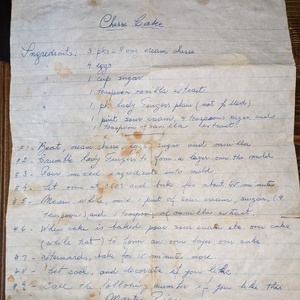 Chese Cake
Ingredients: 3 pks - 8 onz cream chesse
4 eggs
1 cup sugar
1 teaspoon vanilla extract
1 pk. Lady Fingers plain (not filled)
1 pint sour cream, 4 teaspoons sugar and
1 teaspoon of vanilla extract.
#1 - Beat, cream chesse, eggs, sugar and vanilla
#2 - Crumble Lady Fingers to form a layer on the mold
#3 - Pour mixed ingredients into mold
#4 - Let oven at and bake for about 45 minutes
#5 - Mean while, mix 1 pint of sour cream, sugar, (4
teaspoon) and 1 teaspoon of vanilla extract.
#6 - When cake is baked, pour sour cream into oven cake
(while hot) to form an layer on cake
#7 - Afterwards, bake for 10 minutes more.
#8 - Let cool, and decorate as you like
#9 - Call the following number if you like this